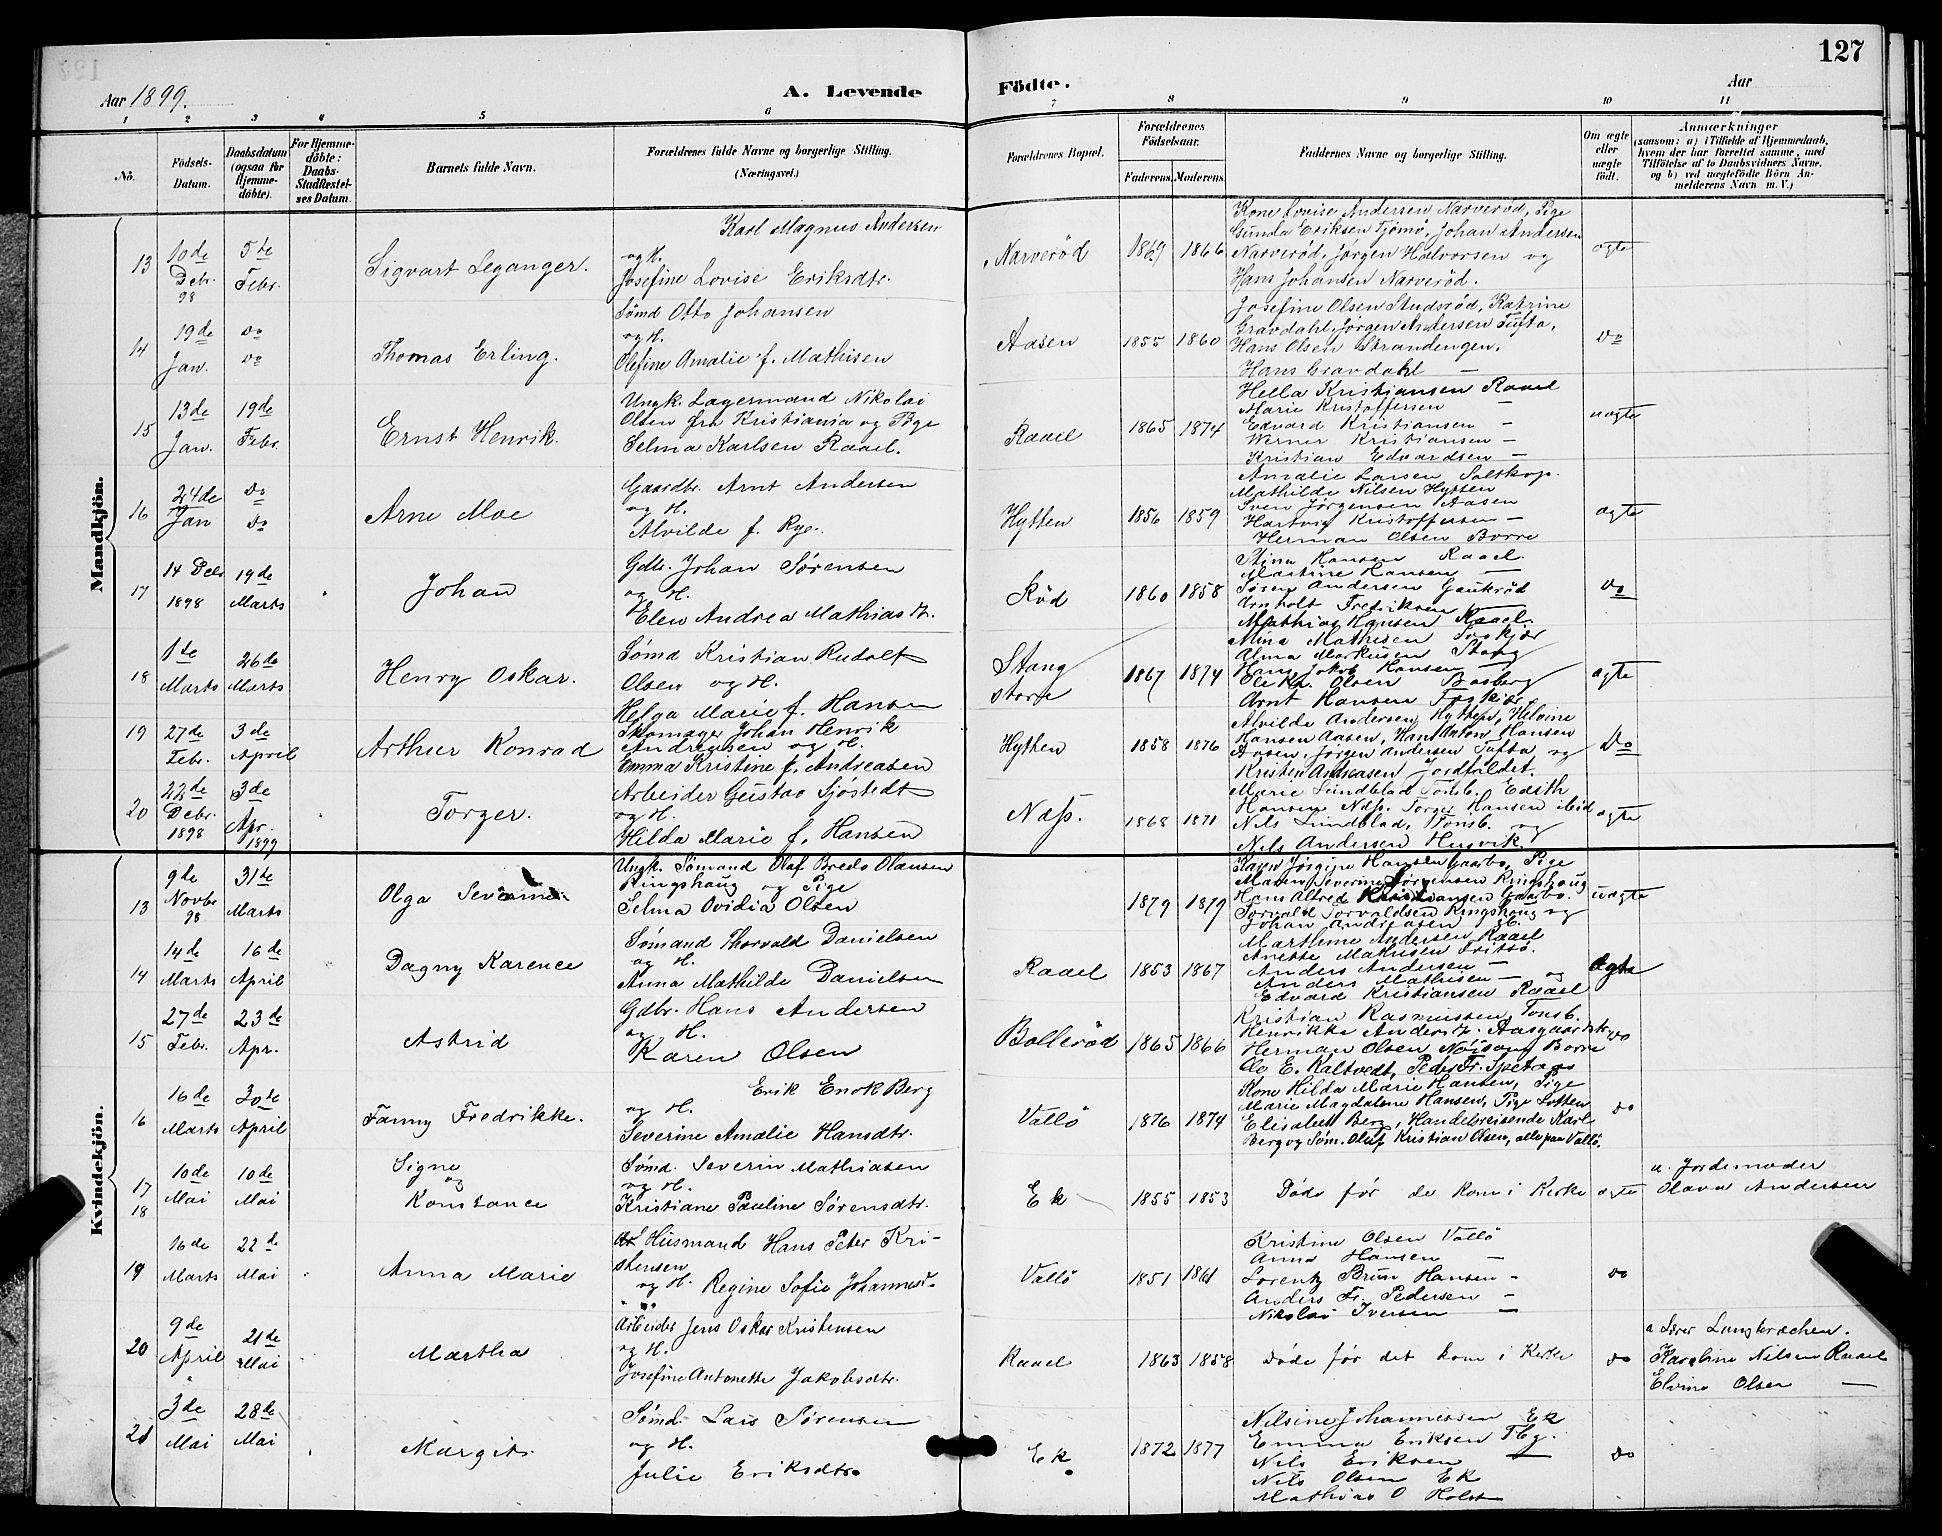 127
Aar 1899.
A. Levende Födte.
Aar
1 2 3 4 5 6 7 8 9 10 11
No.
Födsels-Datum.
Daabsdatum (ogsaa for Hjemme-döbte).
For Hjemme-döbte: Daabs-Stadfæstel-ses Datum.
Barnets fulde Navn.
Forældrenes fulde Navne og borgerlige Stilling. (Næringsvei.)
Forældrenes Bopæl.
Forældrenes Födselsaar.
Faderens. Moderens.
Faddernes Navne og borgerlige Stilling.
Om ægte eller uægte födt.
Anmærkninger
(saasom: a) i Tilfælde af Hjemmedaab,
hvem der har forrettet samme, med
Tilföielse af to Daabsvidners Navne,
og b) ved uægtefödte Börn An-
melderens Navn m. V.)
Mandkjön.
13 10de Debr. 98 5te Febr. Sigvart Leganger.
Karl Magnus Andersen
og H.
Josefine Lovise Eriksdtr.
Narverød 1869 1866
Kone Lovise Andersen Narverød, Pige
Gunda Eriksen Tjømø, Johan Andersen
Narverød, Jørgen Halvorsen og
Hans Johansen Narverød.
ægte
14 19de Jan. do do Thomas Erling.
Sømd Otto Johansen
og H.
Olefine Amalie f. Mathisen
Aasen 1855 1860
Josefine Olsen Studsrød, Katrine
Gravdahl, Jørgen Andersen Tufta,
Hans Olsen Strandengen,
Hans Gravdahl —
do
15 13de Jan. 19de Febr. Ernst Henrik.
Ungk. Lagermand Nikolai
Olsen fra Kristiania og Pige
Selma Karlsen Raael.
Raael 1865 1874
Hella Kristiansen Raael
Marie Kristoffersen
Edvard Kristiansen —
Werner Kristiansen —
Kristian Edvardsen —
uægte
16 24de Jan do do Arne Moe
Gaardbr. Arnt Andersen
og H.
Alvilde f. Rye.
Hytten 1856 1859
Amalie Larsen Saltkop.
Mathilde Nilsen Hytten
Sven Jørgensen Aasen
Hartvig Kristoffersen —
Herman Olsen Borre
ægte
17 14 Debr 1898 19de Marts Johan
Gdbr. Johan Sørensen
og H.
Elen Andrea Mathiasdtr.
Rød 1860 1858
Stina Hansen Raael.
Martine Hansen —
Søren Andersen Gaukrød
Arnholt Fredriksen —
Mathias Hansen Raael.
do
18 1ste Marts 26de Marts Henry Oskar.
Sømd Kristian Rudolf
Olsen og H.
Helga Marie f. Hansen
Stang store 1867 1874
Mina Mathisen
Alma Markusen Stang
Hans Jakob Hansen —
Olsen Basberg
Arnt Hansen
ægte
19 27de Febr. 3de April Arthur Konrad
Skomager Johan Henrik
Andreasen og H.
Emma Kristine f. Andreasen
Hytten 1858 1876
Alvilde Andersen, Hytten, Hilvine
Hansen Aasen, Hans Anton Hansen
Aasen, Jørgen Andersen Tufta og
Kristen Andreasen Jordfaldet.
do
20 22de Debr. 1898 3de Apr. 1899 Torger.
Arbeider Gustav Sjøstedt
og H.
Hilda Marie f. Hansen
Næss. 1868 1871
Marie Lundblad Tønsb. Edith
Hansen Næss. Torger Hansen ibid
Nils Lundblad, Tønsb. og
Nils Andersen Husvik
ægte
Kvindekjön.
13 9de Novbr 98 31te Marts Olga Severine
Ungk. Sømand Olaf Bredo Olausen
Ringshaug og Pige
Selma Ovidia Olsen
1879 1879
Jørgine Hansen Gaarbo, Pige
Maren Severine Jørgensen Ringshaug
Hans Alfred Gaarbo.
Torvald Torvaldsen Ringshaug og
Johan Andreasen
uægte
14 14de Marts 16de April Dagny Karence
Sømand Thorvald Danielsen
og H.
Anna Mathilde Danielsen
Raael 1853 1867
Marthine Andersen Raael
Anette Mathisen
Anders Andersen —
Anders Mathisen — og
Edvard Kristiansen Raael
ægte
15 27de Febr. 23de Apr. Astrid
Gdbr. Hans Andersen
og H.
Karen Olsen
Bollerød 1865 1866
Kristian Rasmussen, Tønsb.
Henrikke Anders
Herman Olsen, Borre
Ole E. Kaltvedt, Peder Fr.
do
16 16de Marts 30te April Fanny Fredrikke.
Erik Enok Berg
og H.
Severine Amalie Hansdtr.
Vallø 1876 1874
Kone Hilda Marie Hansen, Pige
Marie Magdalene Hansen, Pige Lotten
Elisabet Berg, Handelsreisende Karl
Berg og Søm. Oluf Kristian Olsen, alle paa Vallø.
do
17 18 10de Mai 10de Mai Signe
og
Konstance
Sømd. Severin Mathiasen
og H.
Kristiane Pauline Sørensdtr.
Ek 1855 1853
Døde før de kom i Kirke
ægte
a. Jordemoder
Olava Andersen
19 16de Marts 22d Mai Anna Marie
Husmand Hans Peter Kri-
stensen
og H. Regine Sofie Johannesd-
Vallø 1851 1861
Kristine Olsen Vallø
Anna Hansen —
Lorentz Brun Hansen -
Anders Fr. Pedersen -
Nikolai Iversen —
do
20 9de April 21de Mai Martha
Arbeider Jens Oskar Kristensen
og H.
Josefine Antonette Jakobsdtr.
Raael 1863 1858
Døde før det kom i Kirke
do
a Lærer Langbrechen.
Karoline Nilsen Raael
Elvine Olsen —
21 3de Mai 28de Mai Margit
Sømd. Lars Sørensen
og H.
Julie Eriksdtr.
Ek 1872 1877
Nilsine Johannessen Ek
Emma Eriksen Tbg.
Nils Eriksen —
Nils Olsen Ek
Mathias O Holst
do